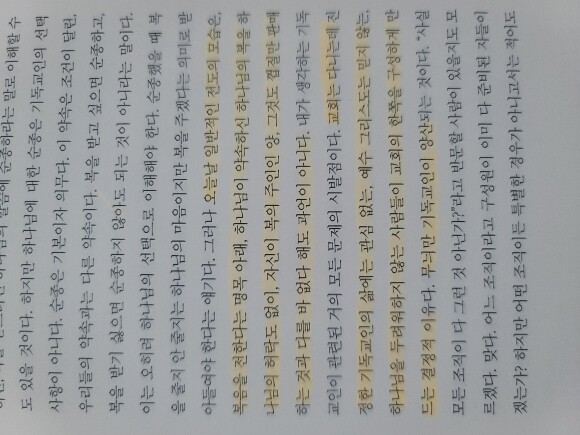 하나님의 말씀에 순종하라는 말로 이해할 수
도 있을 것이다. 하지만 하나님에 대한 순종은 기독교인의 선택
사항이 아니다. 순종은 기본이자 의무다. 이 약속은 조건이 달린,
우리들의 약속과는 다른 약속이다. 복을 받고 싶으면 순종하고,
복을 받기 싫으면 순종하지 않아도 되는 것이 아니라는 말이다.
이는 오히려 하나님의 선택으로 이해해야 한다. 순종했을 때 복
을 줄지 안 줄지는 하나님의 마음이지만 복을 주겠다는 의미로 받
아들여야 한다는 얘기다. 그러나 오늘날 일반적인 전도의 모습은,
복음을 전한다는 명목 아래, 하나님이 약속하신 하나님의 복을 하
나님의 허락도 없이, 자신이 복의 주인인 양, 그것도 헐값만 판매
하는 것과 다를 바 없다 해도 과언이 아니다. 내가 생각하는 기독
교인이 관련된 거의 모든 문제의 시발점이다. 교회는 다니는데 진
정한 기독교인의 삶에는 관심 없는, 예수 그리스도는 믿지 않는,
하나님을 두려워하지 않는 사람들이 교회의 한쪽을 구성하게 만
드는 결정적 이유다. 무늬만 기독교인이 양산되는 것이다. “사실
모든 조직이 다 그런 것 아닌가?”라고 반문할 사람이 있을지도 모
르겠다. 맞다. 어느 조직이라고 구성원이 이미 다 준비된 자들이
겠는가? 하지만 어떤 조직이든 특별한 경우가 아니고서는 적어도